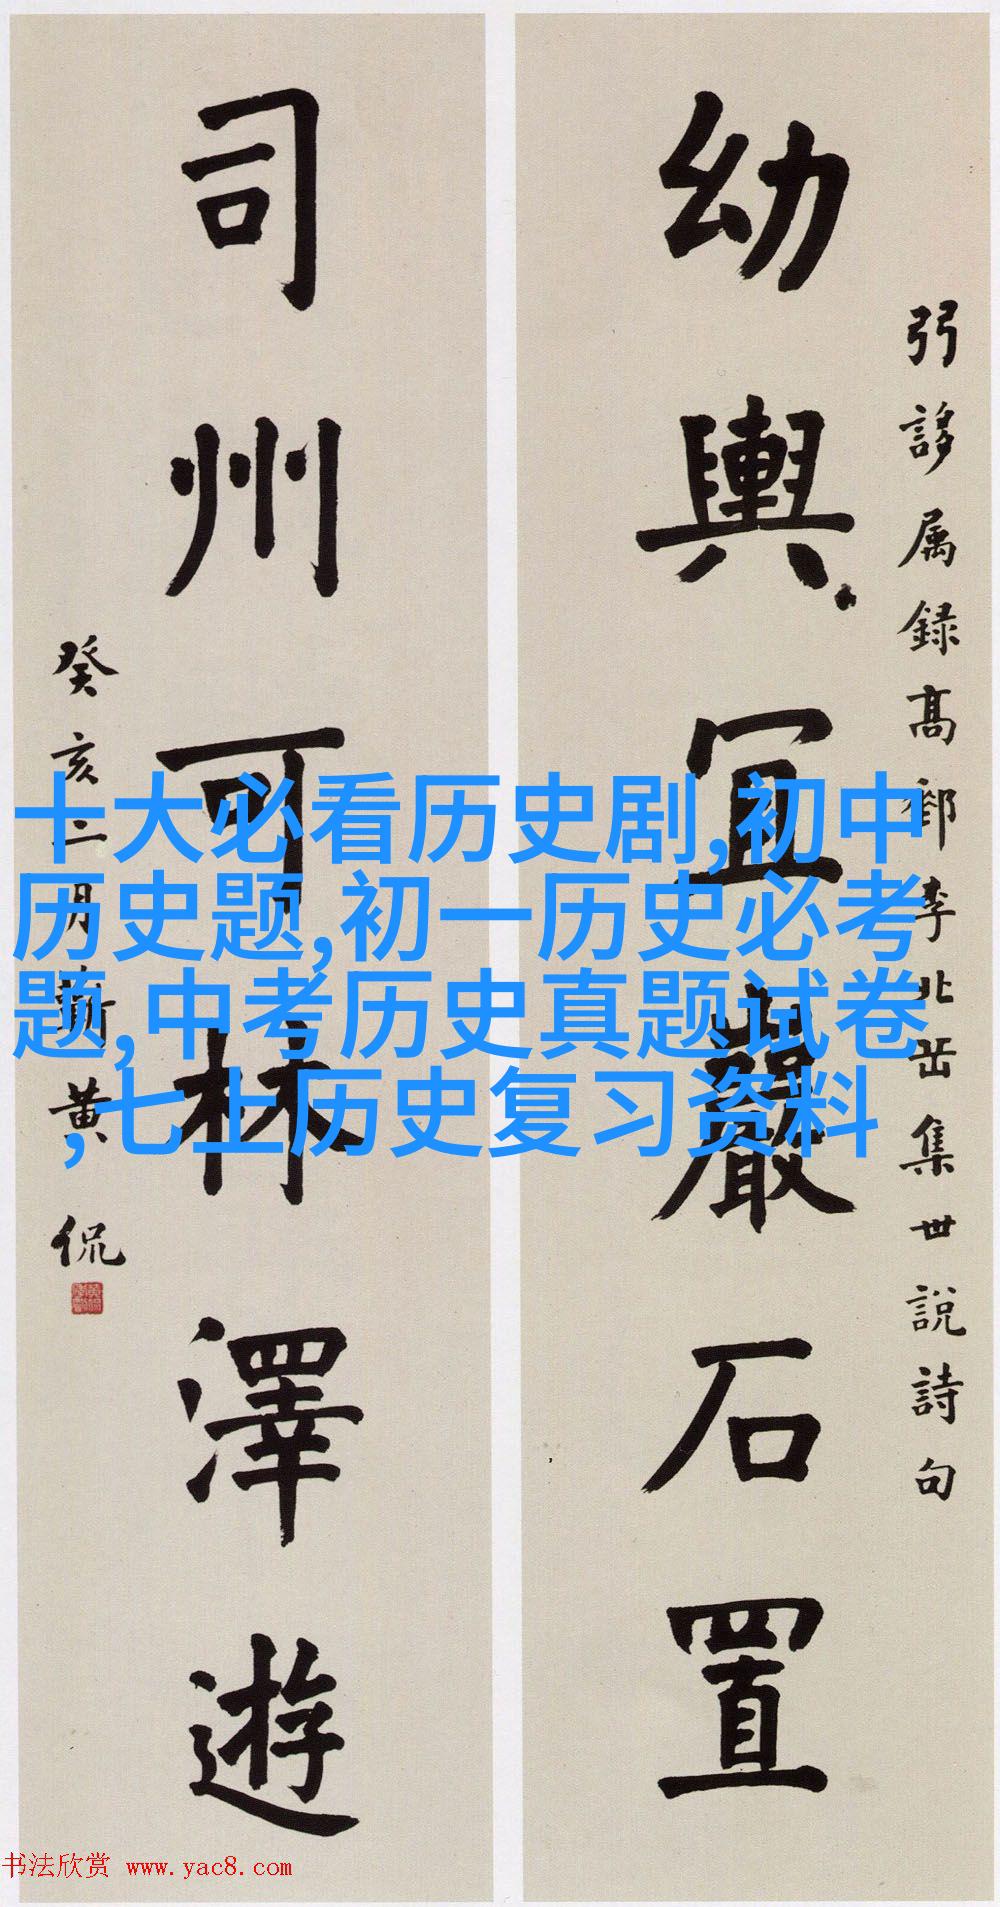 弜誃属録高郵李北岳集世說詩句
幼輿宜巖石置
司州可林澤遊
癸亥二月蘄黃侃
十大必看历史剧,初中
历史题,初一历史必考
题,中考历史真题试卷
,七上历史复习资料
书法欣赏 www.yac8.com